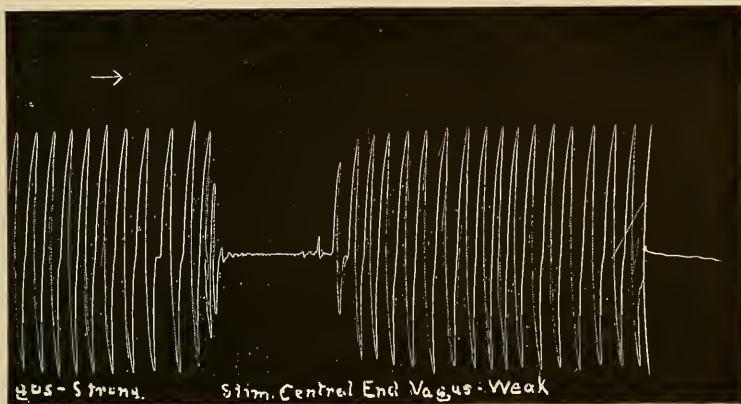 gus-Strong. Stim. Central End Vagus-Weak